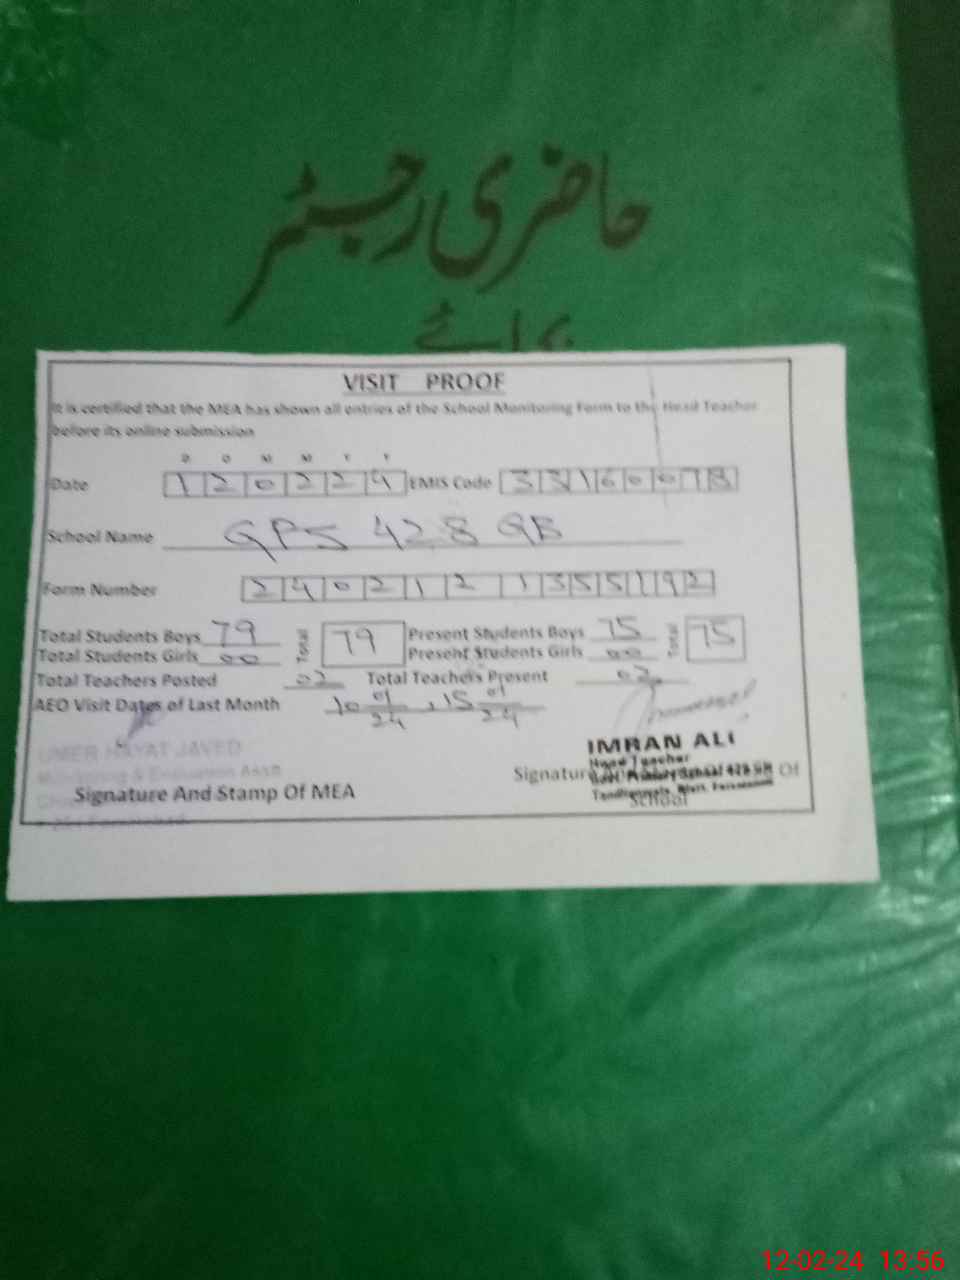 حاضری رجسٹر
برائے
VISIT PROOF
It is certified that the MEA has shown all entries of the School Monitoring Form to the Head Teacher
before its online submission
D D M M Y Y
Date 120224 EMIS Code 33160078
School Name GPS 428 GB
Form Number 2402121355192
Total Students Boys 79 Total 79 Present Students Boys 75 Total 75
Total Students Girls 00 Present Students Girls 00
Total Teachers Posted 02 Total Teachers Present 02
AEO Visit Dates of Last Month 10 01/24, 15 01/24
UMER HAYAT JAVED
Monitoring & Evaluation Asstt
IMRAN ALI
Head Teacher
Govt. Primary School 428 GB
Tandlianwala, Distt. Faisalabad
Signature And Stamp Of MEA
Signature Of
School
12-02-24 13:56